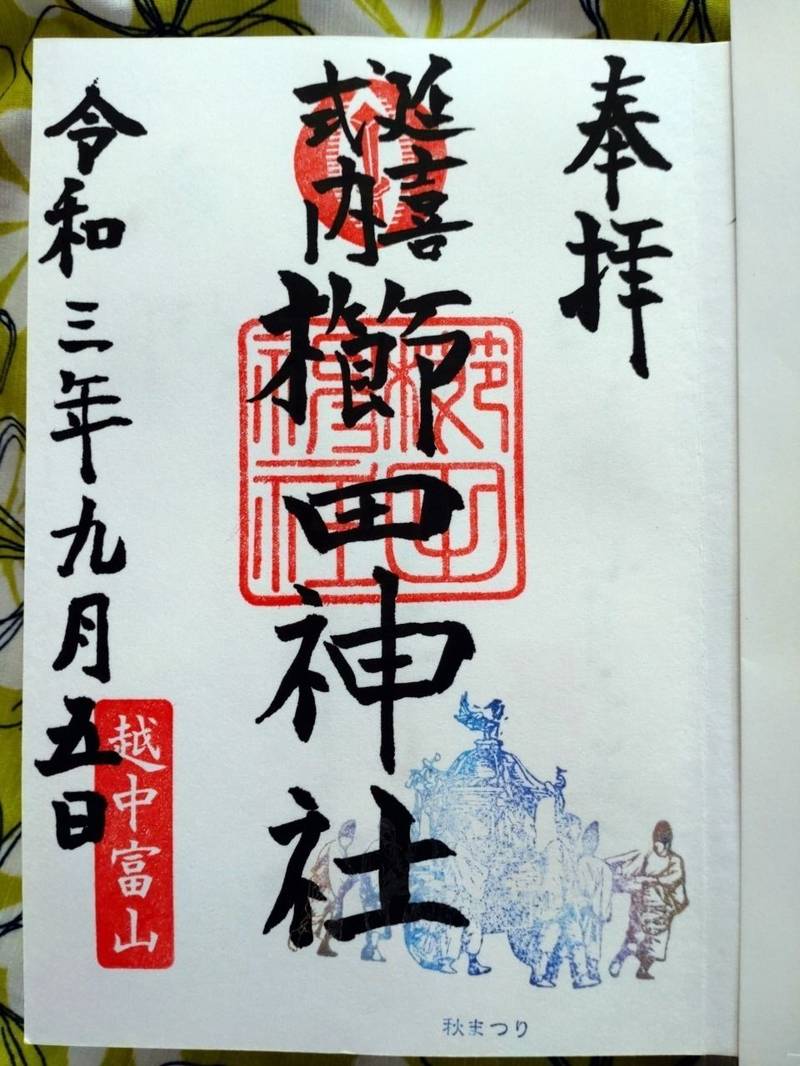 奉拝
延喜
式内
櫛田神社
櫛田
神社
令和三年九月五日
越中富山
秋まつり